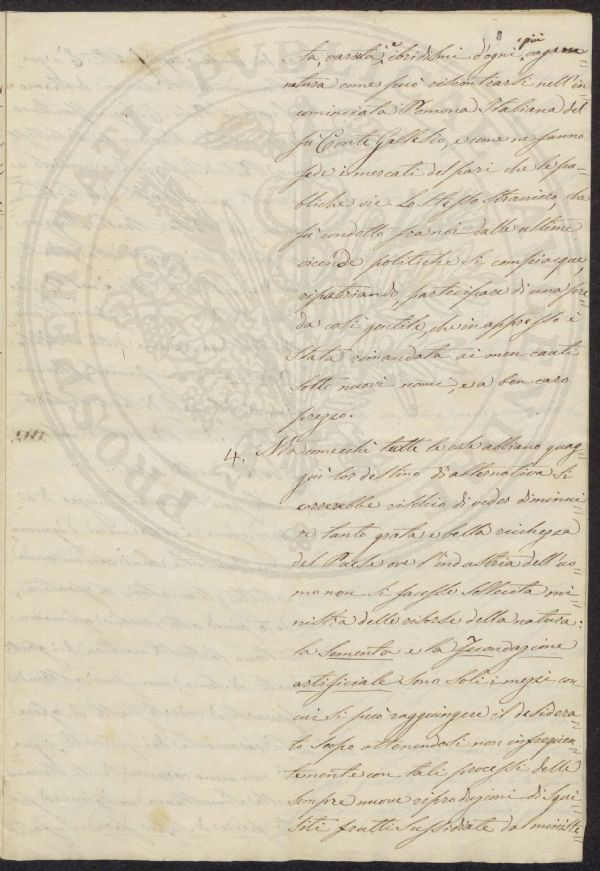 8
più
ta, varietà, e ibridismi d'ogni vaga
natura come può riscontrarsi nell'in=
cominciata Pomona Italiana del
fù Conte Gallesio, e come ne fanno
fede i mercati del pari che le pu=
bliche vie. Lo stesso Straniero, che
fù condotto fra noi dalle ultime
vicende politiche si compiacque,
ripatriando, partecipare di una pre=
da così gentile, che in appresso è
stata rimandata ai men cauti
sotto nuovi nomi, e a ben caro
prezzo.
4. Ma comecchè tutte le cose abbiano quag=
giù lor destino di alternativa si
correrebbe rischio di veder diminui=
re tanto grata e bella ricchezza
del Paese ove l'industria dell'uo=
mo non si facesse sollecita mi=
nistra delle risorse della natura:
la Sementa e la Fecondazione
artificiale sono soli i mezzi con
cui si può raggiungere il desidera=
to scopo ottenendosi non infrequen=
temente con tali processi delle
sempre nuove riproduzioni di squi=
siti frutti sussidiate da ministe=
PROSPERITATI PUBLICAE